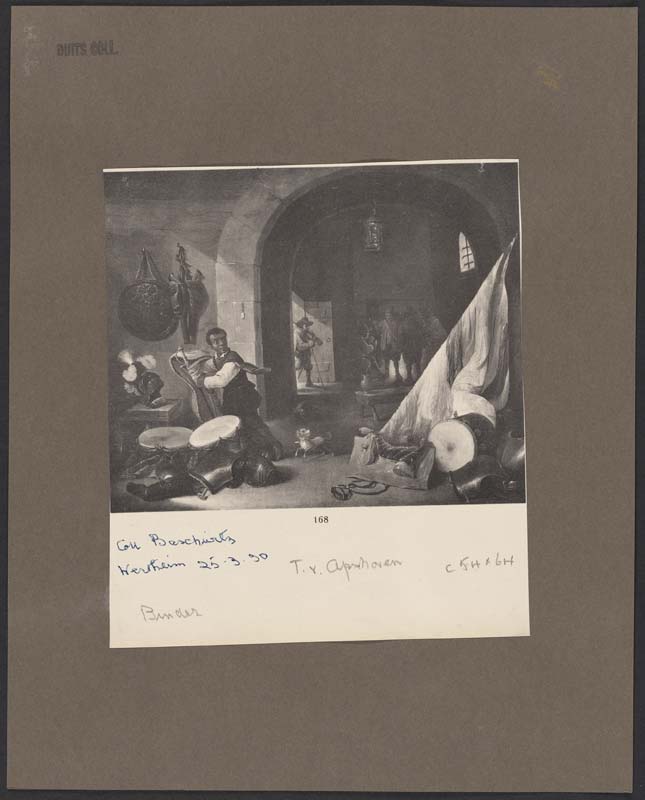 DUITS COLL.
168
Coll Baschwitz
Wertheim 25.3.30
T. v. Apshoven
Binder